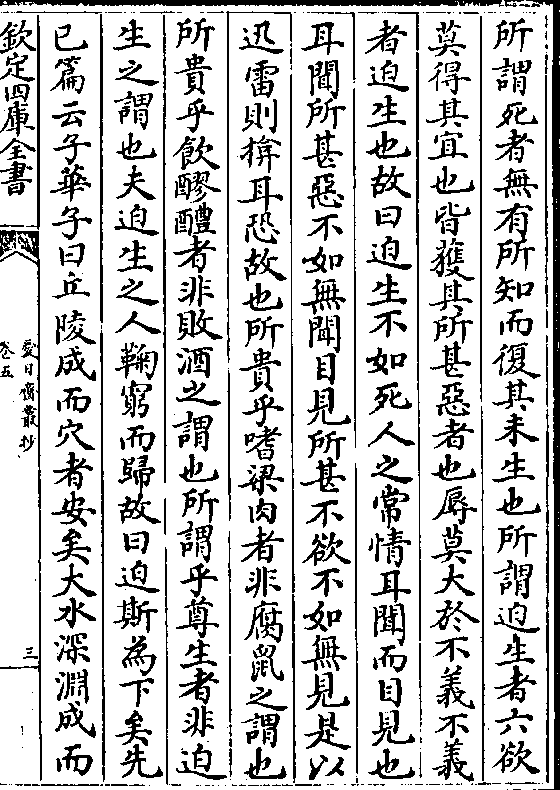 所謂死者無有所知而復其未生也所謂迫生者六欲
莫得其宜也皆獲其所甚惡者也辱莫大於不義不義
者迫生也故曰迫生不如死人之常情耳聞而目見也
耳聞所甚惡不如無聞目見所甚不欲不如無見是以
迅雷則揜耳恐故也所貴乎嗜梁肉者非腐鼠之謂也
所貴乎飲醪醴者非敗酒之謂也所謂乎尊生者非迫
生之謂也夫迫生之人鞠窮而歸故曰迫斯為下矣先
已篇云子華子曰丘陵成而穴者安矣大水深淵成而
欽定四庫全書
愛日齋叢抄
卷五
三